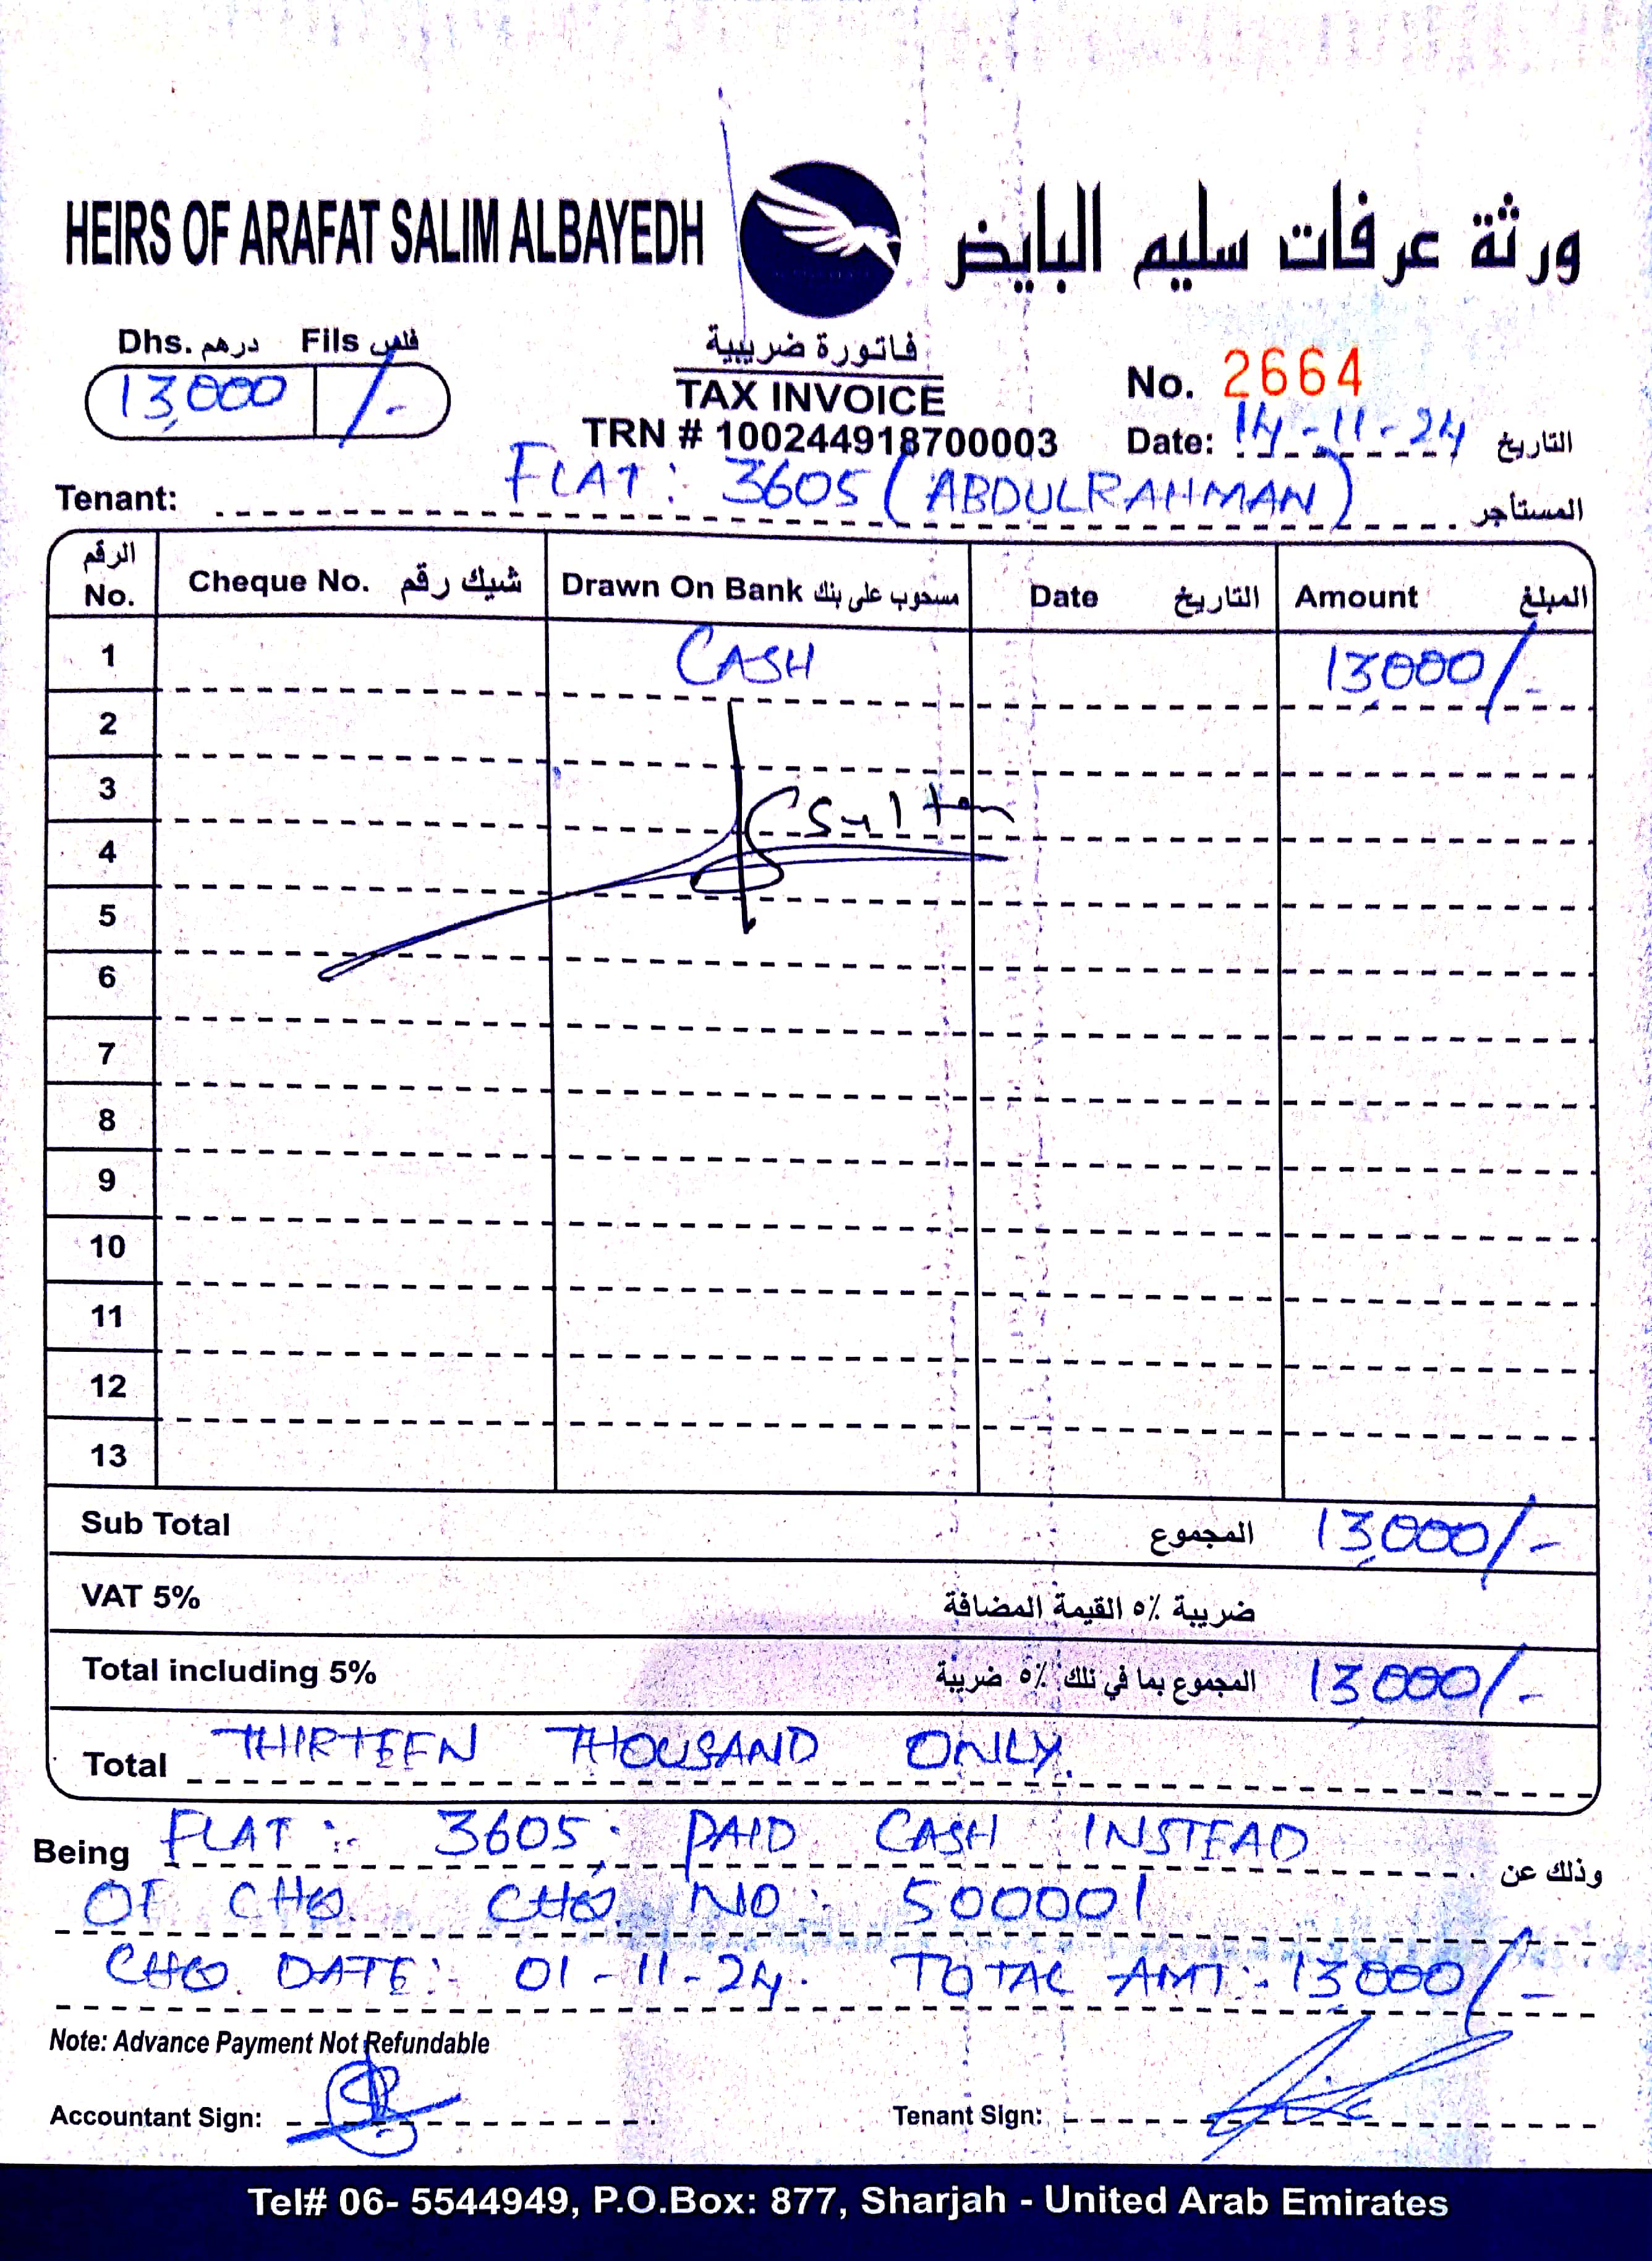 HEIRS OF ARAFAT SALIM ALBAYEDH ورثة عرفات سليم البايض
Dhs. درهم Fils فلس
13,000 /-
فاتورة ضريبية
TAX INVOICE
TRN # 100244918700003
No. 2664
Date: 14-11-24 التاريخ
Tenant: FLAT: 3605 (ABDULRAHMAN) المستأجر
الرقم No. Cheque No. شيك رقم Drawn On Bank مسحوب على بنك Date التاريخ Amount المبلغ
1 CASH 13,000/-
2
3 Sultan
4
5
6
7
8
9
10
11
12
13
Sub Total المجموع 13,000/-
VAT 5% ضريبة ٥٪ القيمة المضافة
Total including 5% المجموع بما في ذلك ٥٪ ضريبة 13,000/-
Total THIRTEEN THOUSAND ONLY.
Being FLAT:- 3605; PAID CASH INSTEAD وذلك عن
OF CHQ. CHQ. NO: 500001
CHQ. DATE:- 01-11-24. TOTAL AMT:- 13,000/-
Note: Advance Payment Not Refundable
Accountant Sign: Tenant Sign:
Tel# 06- 5544949, P.O.Box: 877, Sharjah - United Arab Emirates